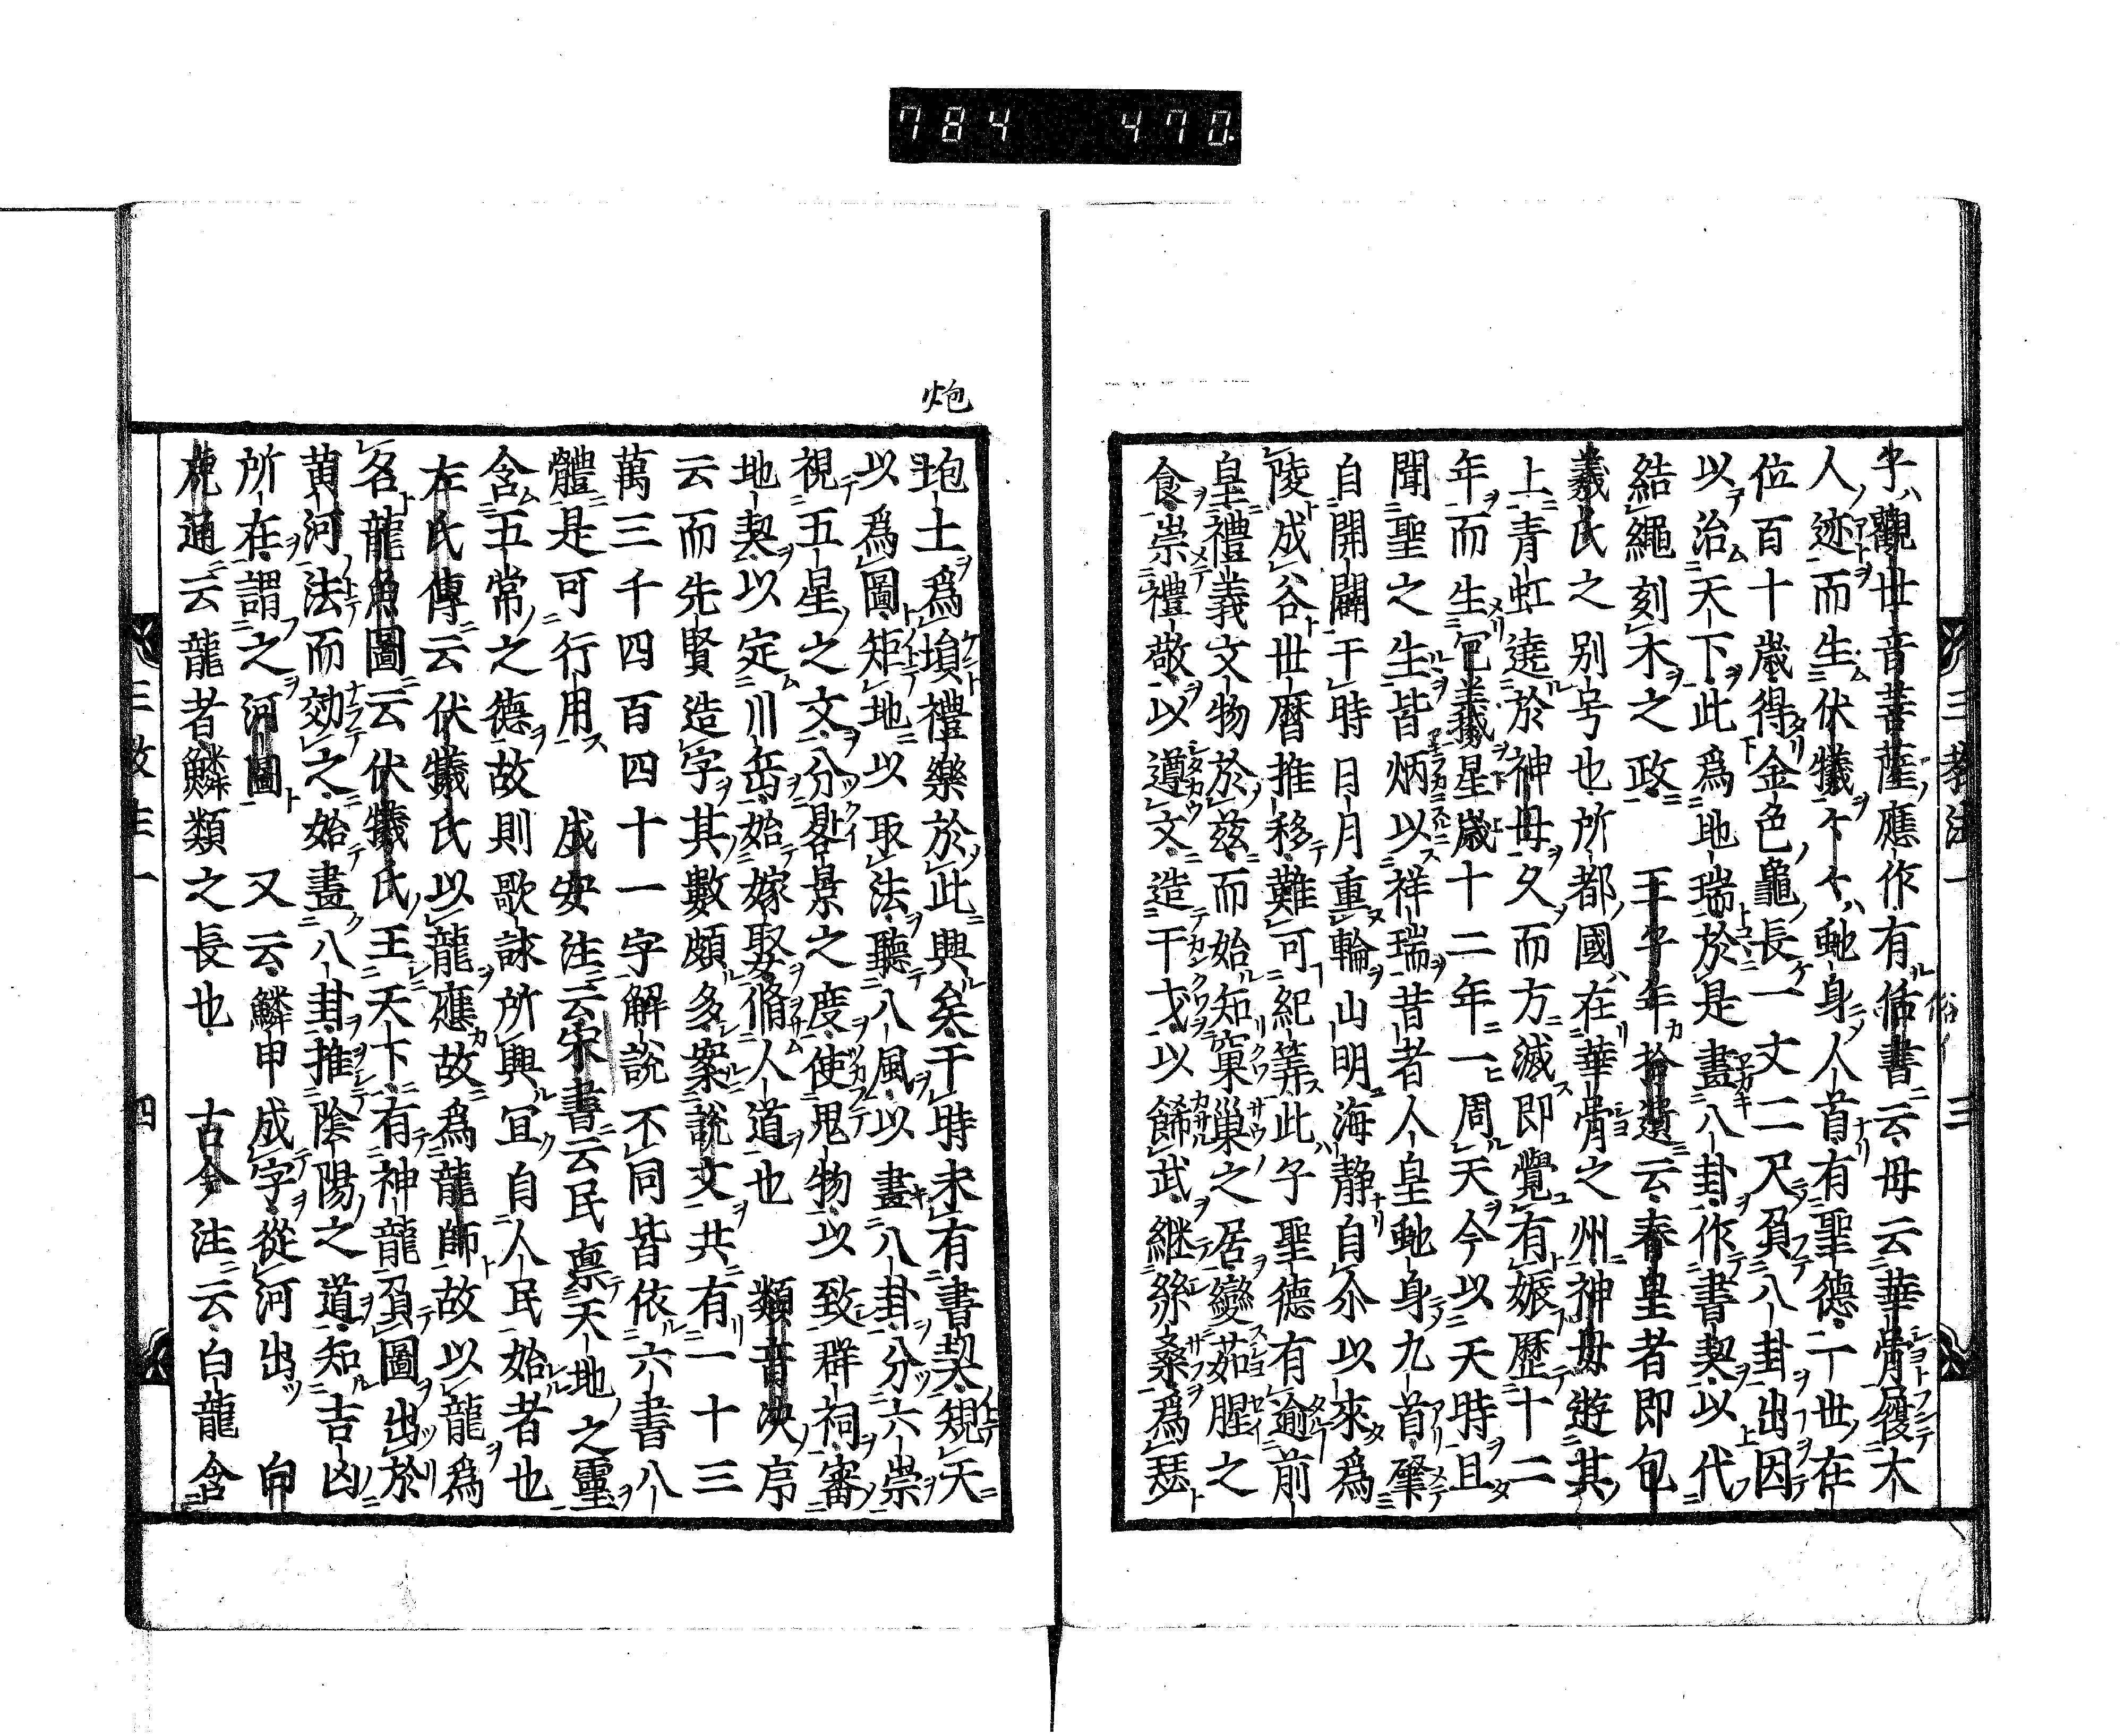 784 470.
三教注一 三
俗イ
牛觀世音菩薩應作有俗書云母云華胥履大
人迹而生伏犧〻〻虵身人首有聖德二一世在
位百十歲得金色龜長一丈二尺負八卦出因
以治天下此爲地瑞於是畫八卦作書契以代
結繩刻木之政 王子年拾遺云春皇者即包
羲氏之別号也所都國在華胥之州神母遊其
上青虹遶於神母久而方滅即覺有娠歷十二
年而生包羲歲星十二年一周天今以天時且
聞聖之生皆炳以祥瑞昔者人皇虵身九首肇
自開闢于時日月重輪山明海靜自尒以來爲
陵成谷世曆推移難可紀筭此乎聖德有逾前
皇禮義文物於茲而始知窠巢之居變茹腥之
食崇禮敬以遵文造干戈以飾武継絲桑爲瑟
炮
土爲塤禮樂於此興矣于時未有書契規天
以爲圖矩地以取法聽八風以畫八卦分六崇
視五星之文分晷景之度使鬼物以致群祠審
地契以定川岳始嫁娶脩人道也 類音决序
云而先賢造字其數頗多案說文共有一十三
萬三千四百四十一字解說不同皆依六書八
體是可行用 成安注云宋書云民禀天地之靈
含五常之德故則歌詠所興冝自人民始者也
左氏傳云伏犧氏以龍應故爲龍師故以龍爲
名龍魚圖云伏犧氏王天下有神龍負圖出於
黄河法而効之始畫八卦推陰陽之道知吉凶
所在謂之河圖 又云鱗甲成字從河出 白
虎通云龍者鱗類之長也 古今注云白龍含
三教注一 四